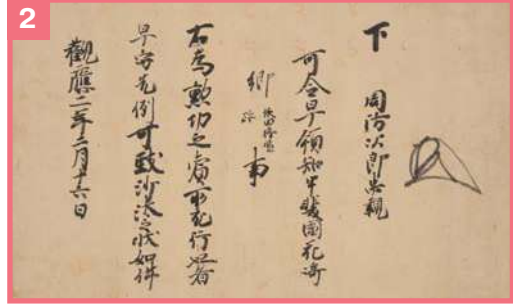 2
下 周防次郎忠親
可令早領知甲斐國花崎
郷 跡 事
右為勲功之賞所充行也者
早守先例可致沙汰之状如件
觀應二年二月十六日